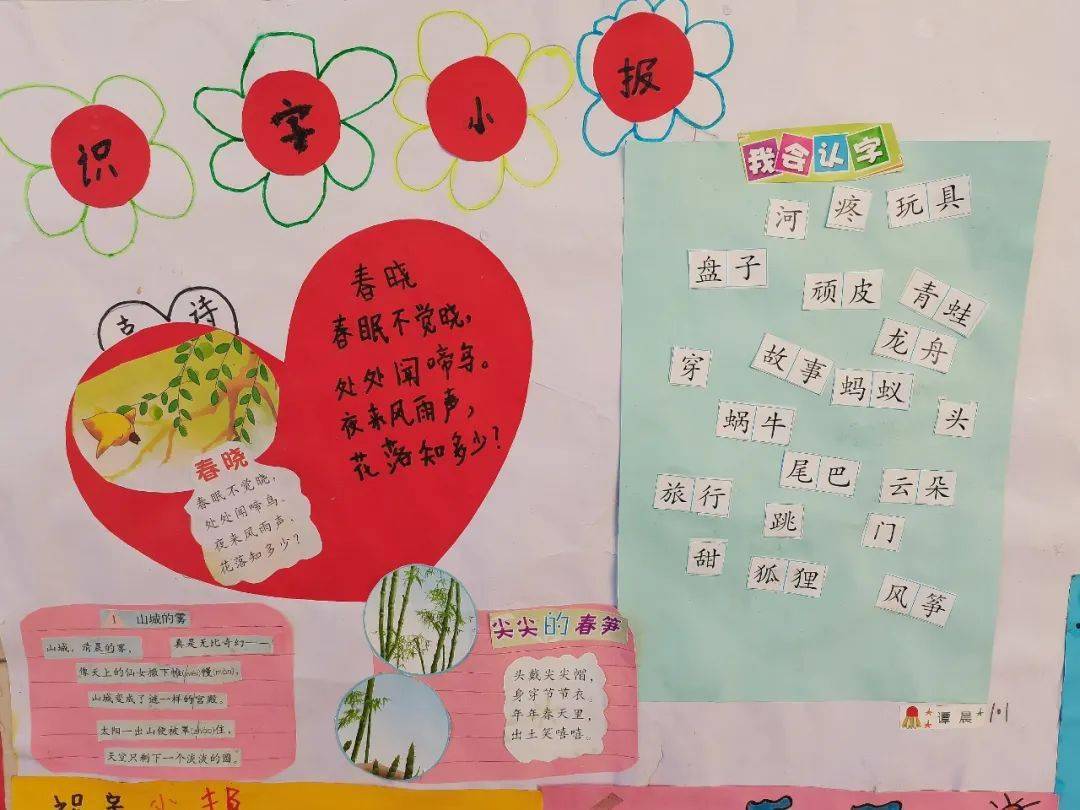 识字小报
我会认字
河 疼 玩具
盘子 顽皮 青蛙
龙舟
穿 故事 蚂蚁
蜗牛 头
尾巴 云朵
旅行 跳 门
甜 狐狸 风筝
古诗
春晓
春眠不觉晓,
处处闻啼鸟。
夜来风雨声,
花落知多少?
春晓
春眠不觉晓,
处处闻啼鸟。
夜来风雨声,
花落知多少?
1 山城的雾
山城,清晨的雾, 真是无比奇幻——
像天上的仙女撒下帷(wéi)幔(màn),
山城变成了谜一样的宫殿。
太阳一出山便被罩(zhào)住,
天空只剩下一个淡淡的圆。
尖尖的春笋
头戴尖尖帽,
身穿节节衣。
年年春天里,
出土笑嘻嘻。
谭晨 101
识字小报